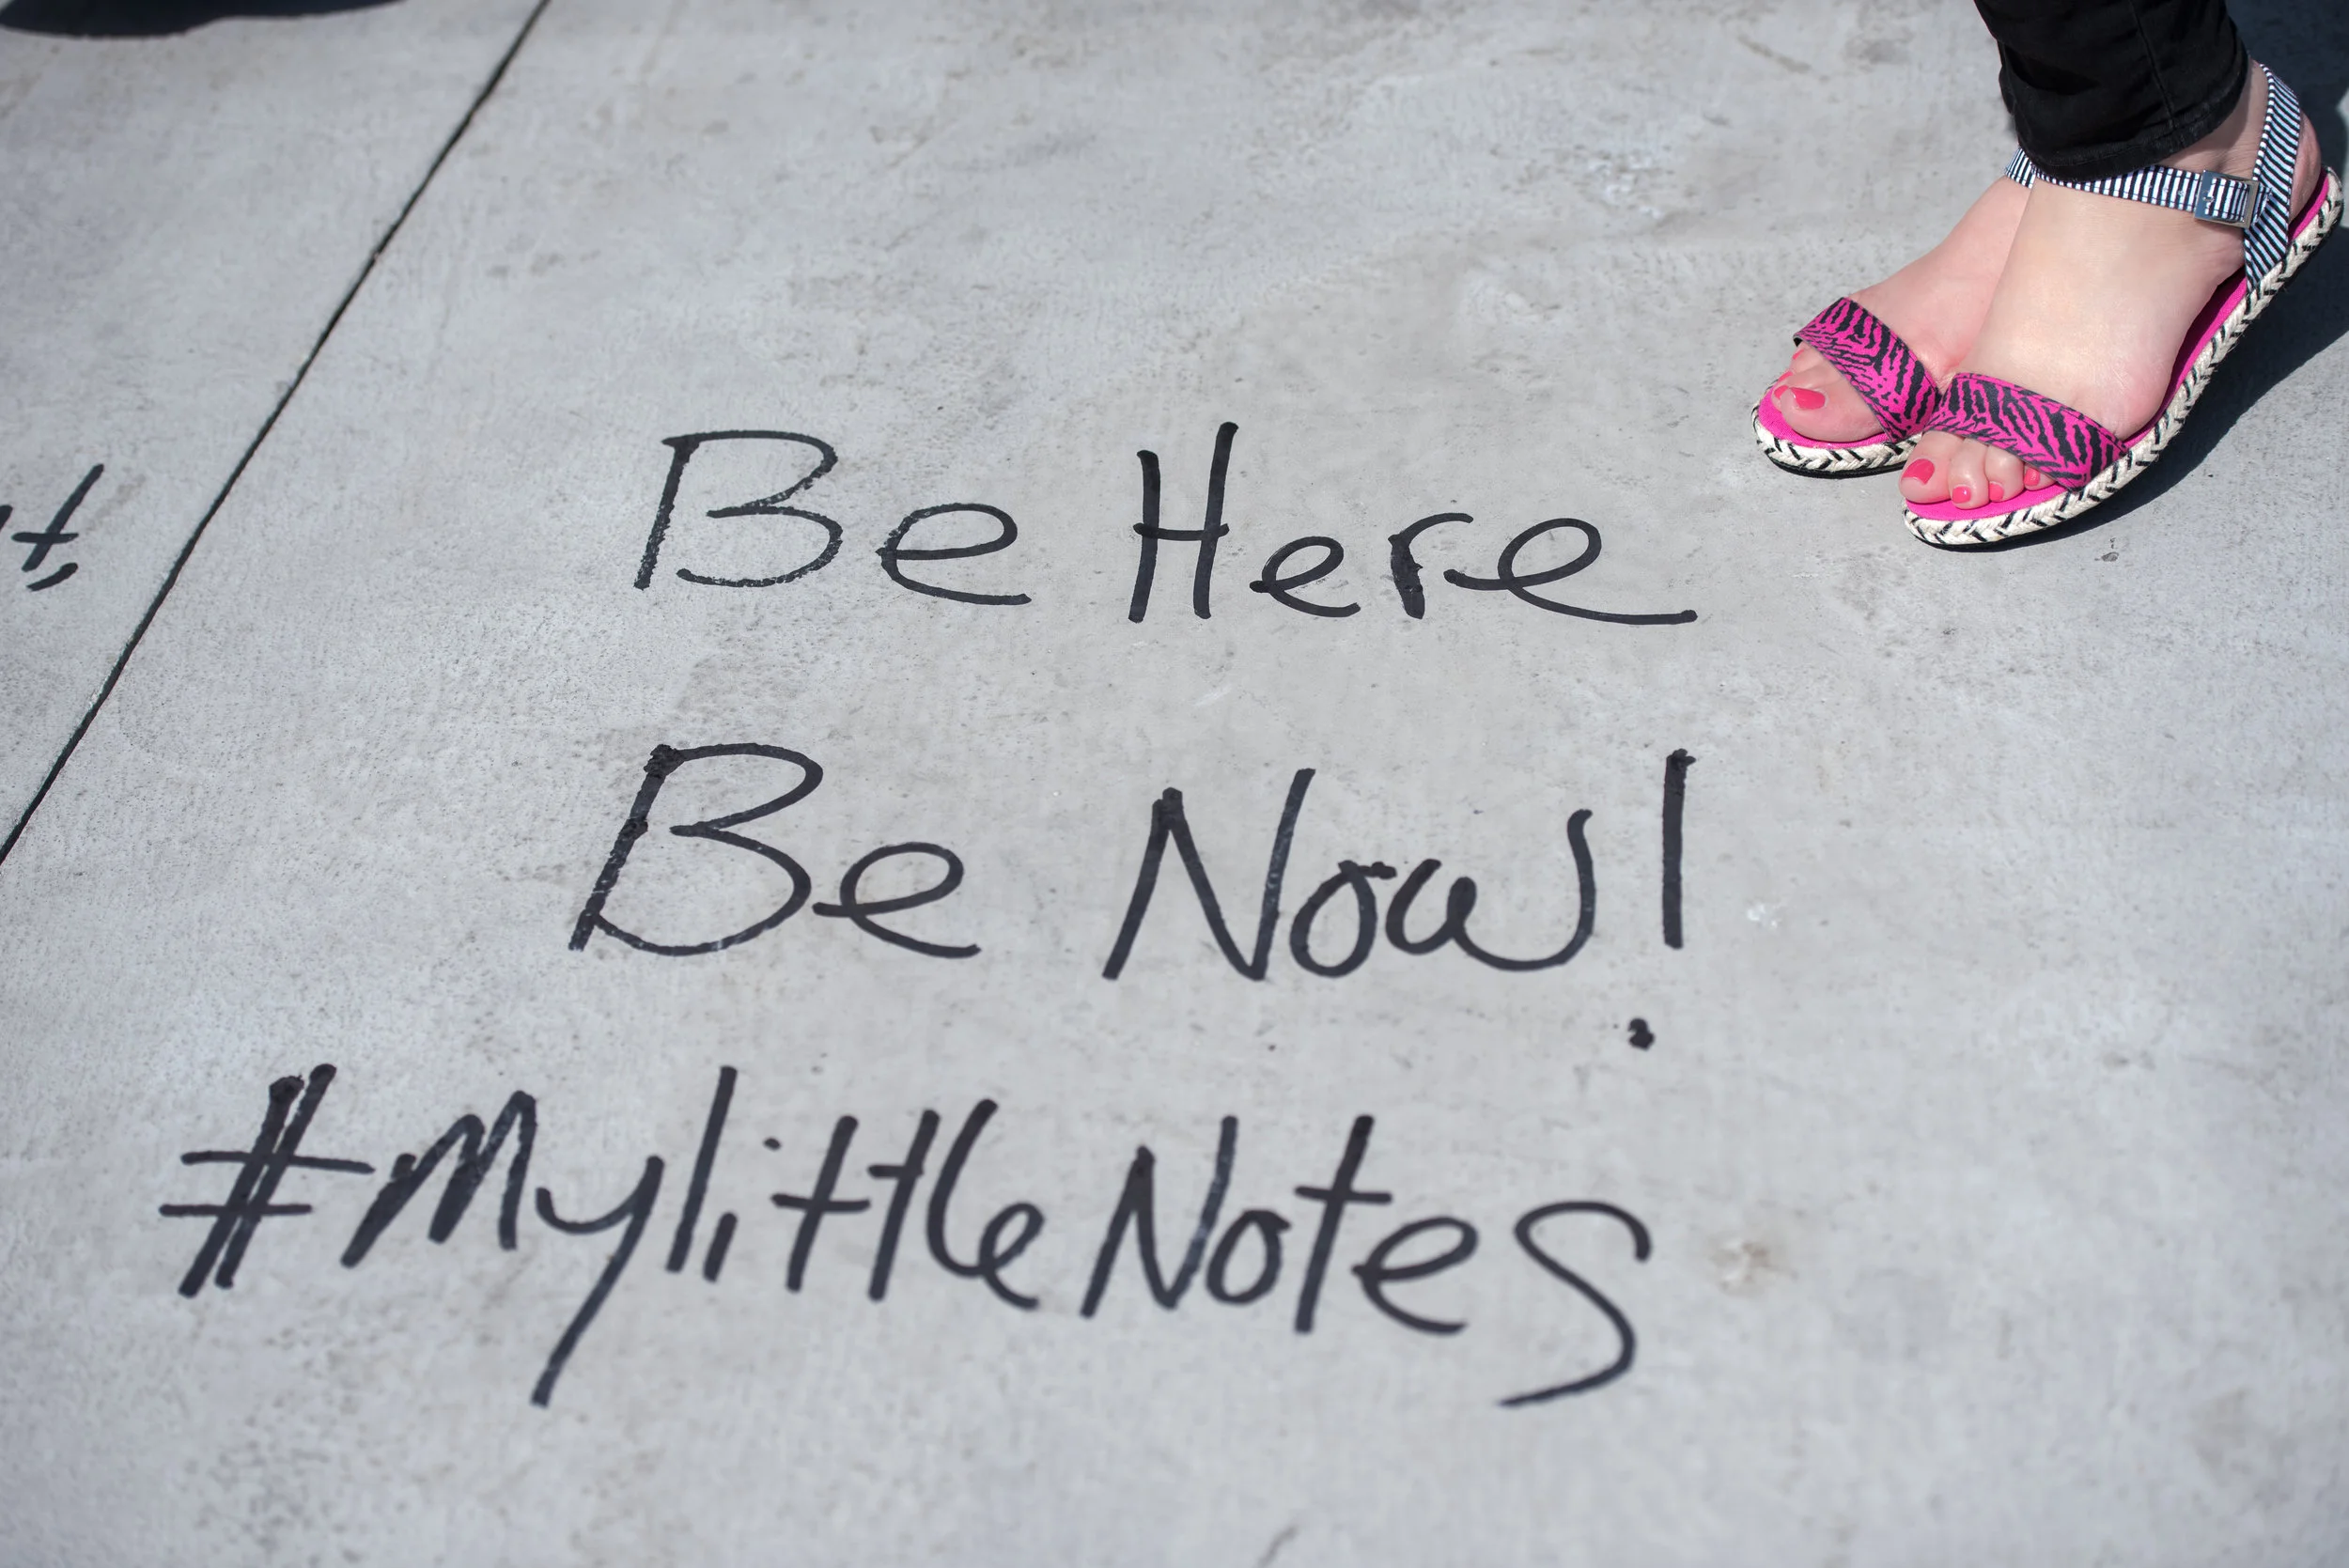 Be Here
Be Now!
#MylittleNotes